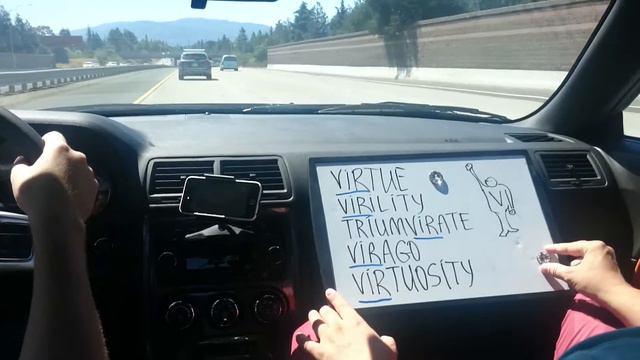 VIRTUE
VIRILITY
TRIUMVIRATE
VIRAGO
VIRTUOSITY
V